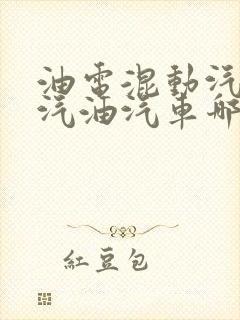 油電混動汽
汽油汽車哪
紅豆包